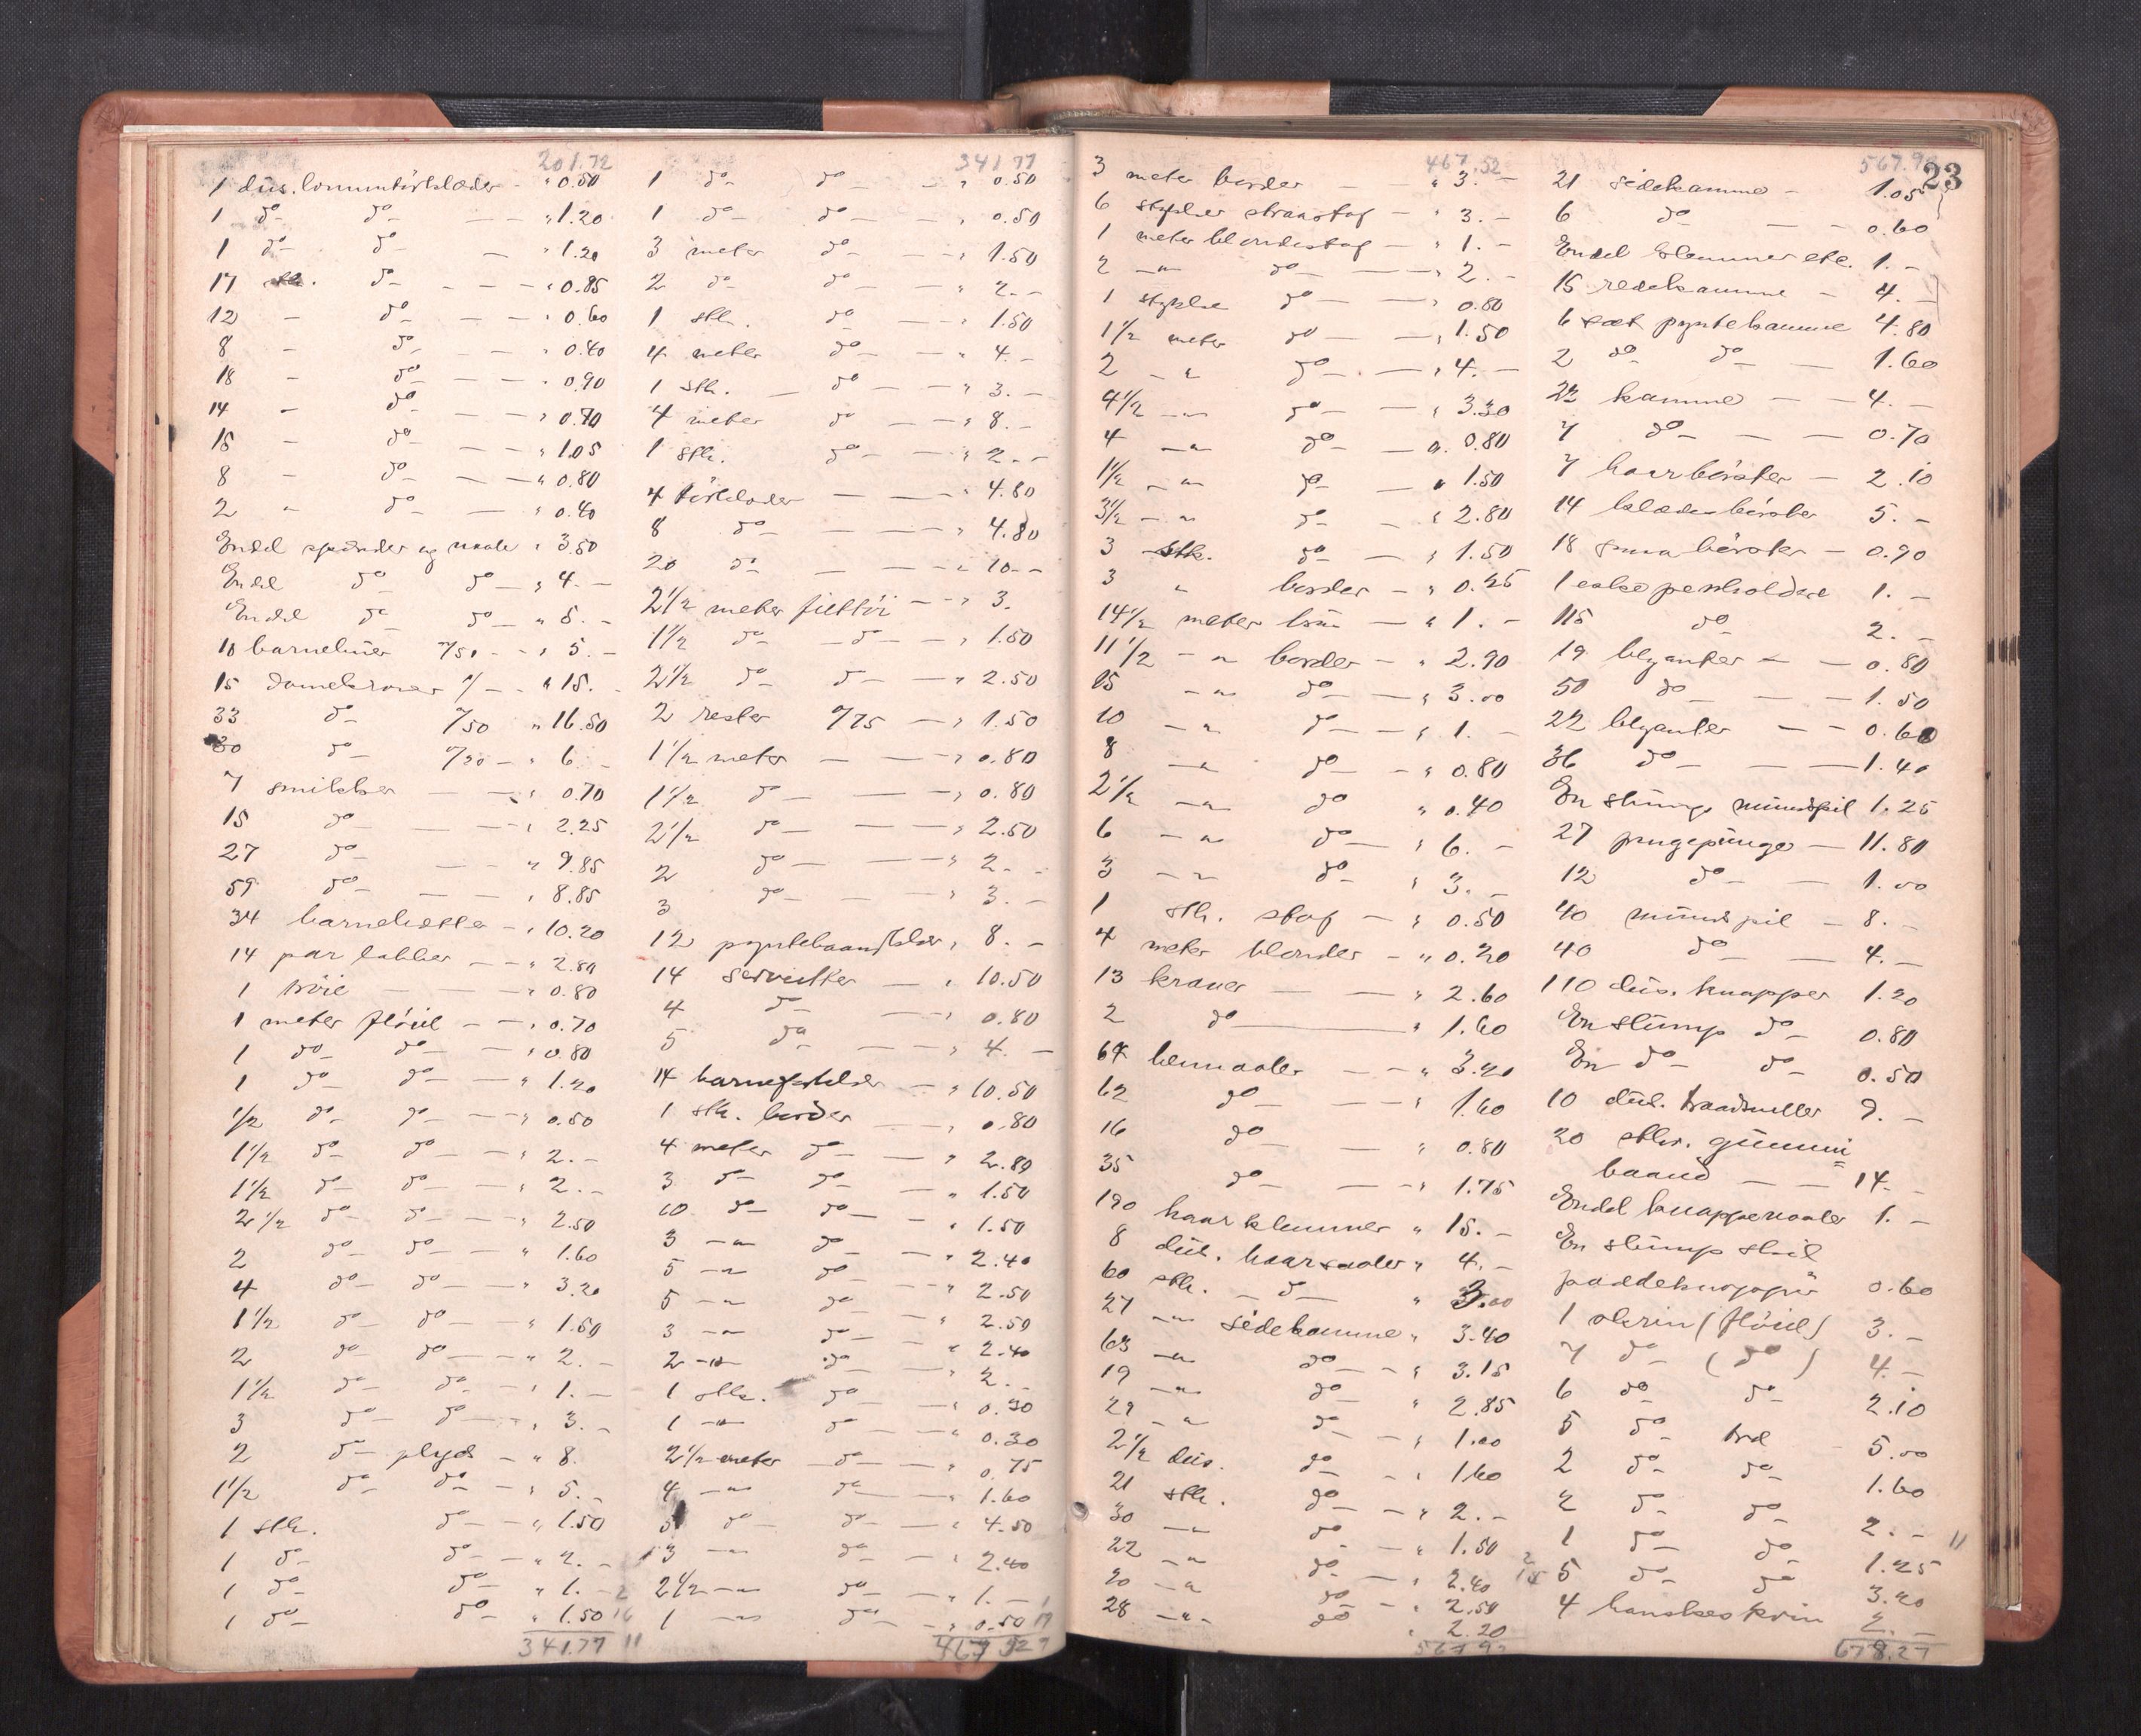 201.72
1 düs. lommetörklæder - " 0.50
1 do do - " 1.20
1 do do - " 1.20
17 stk. do - " 0.85
12 - do - " 0.60
8 - do - " 0.40
18 - do - " 0.90
14 - do - " 0.70
do - " 1.05
8 - do - " 0.80
2 " do - " 0.40
Endel spænder og naale " 3.50
Endel do do - " 4. -
Endel do do - " 5. -
10 barneluer a/50 - " 5. -
15 damekraver a/ - " 15. -
33 do a/50 " 16.50
30 do a/20 - " 6. -
7 smikker - " 0.70
15 do - " 2.25
27 do - " 9.85
59 do - " 8.85
34 barnehætter - " 10.20
14 par labber - " 2.80
1 tröie - " 0.80
1 meter flöiel - " 0.70
1 do do - " 0.80
1 do do - " 1.20
1/2 do do - " 0.50
1 1/2 do do - " 2. -
1 1/2 do do - " 2. -
2 1/2 do do - " 2.50
2 do do - " 1.60
4 do do - " 3.20
1 1/2 do do - " 1.50
2 do do - " 2. -
1 1/2 do do - " 1. -
3 do do - " 3. -
2 do plyds - " 8.
1 1/2 do do - " 5. -
1 stk. do - " 1.50
1 do do - " 2. -
1 do do - " 1. -
1 do do " 1.50
341.77
341.77
1 do do - " 0.50
1 do do - " 0.50
3 meter do - " 1.50
2 do do - " 2. -
1 stk. do - " 1.50
4 meter do - " 4. -
1 stk. do - " 3. -
4 meter do - " 8. -
1 stk. do - " 2. -
4 törklæder - " 4.80
8 do - 4.80
20 do - 10. -
2 1/2 meter filttöi - " 3.
1 1/2 do do - " 1.50
2 1/2 do do - " 2.50
2 rester a/75 - " 1.50
1 1/2 meter - " 0.80
1 1/2 do - " 0.80
2 1/2 do - " 2.50
2 do - " 2. -
3 do - " 3. -
12 pyntehaandklær " 8. -
14 servietter - " 10.50
4 do - " 0.80
5 do - " 4. -
14 barneforklær - " 10.50
1 stk. border - " 0.80
4 meter do - " 2.80
3 do do - " 1.50
10 do do - " 1.50
3 -"- do - " 2.40
5 -"- do - " 2.50
5 -"- do - " 2.50
3 -"- do - " 2.40
2 -"- do - " 2. -
1 stk. do - " 0.30
1 -"- do - " 0.30
2 1/2 meter do - " 0.75
4 -"- do - " 1.60
5 do do - " 4.50
3 -"- do - " 2.40
2 1/2 -"- do - " 1. -
1 -"- do - " 0.50
467.52
467.52
3 meter border - " 3. -
6 stykker straastof - " 3. -
1 meter blondestof - " 1. -
2 -"- do - " 2. -
1 stykke do - " 0.80
1 1/2 meter do - " 1.50
2 -"- do - " 4. -
4 1/2 -"- do - " 3.30
4 -"- do - " 0.80
1 1/2 -"- do - " 1.50
3 1/2 -"- do - " 2.80
3 stk. do - " 1.50
3 " border - " 0.25
14 1/2 meter - " 1. -
11 1/2 -"- border - " 2.90
-"- do - " 3.00
10 -"- do - " 1. -
8 -"- do - " 0.80
2 1/2 -"- do " 0.40
6 -"- do - " 6. -
3 -"- do " 3. -
1 stk. stof - " 0.50
4 meter blonder - " 0.20
13 kraver - " 2.60
2 do - " 1.60
64 hennaaler - " 3.20
62 do - " 1.60
16 do - " 0.80
35 do - " 1.75
190 haarklemmer " 15. -
8 düs. haarnaaler " 4. -
60 stk. do " 3.00
27 -"- sidekamme " 3.40
63 -"- do - " 3.15
19 -"- do " 2.85
29 -"- do - " 1.00
2 1/2 düs. do - " 1.60
21 stk. do - " 2. -
30 -"- do - " 1.50
22 -"- do - " 2.40
20 -"- do - " 2.50
28 -"- do " 2.20
567.92
567.92
23
21 sidekamme - 1.05
6 do - 0.60
Endel klemmer etc. 1. -
15 redekamme - 4. -
6 sæt pyntekamme 4.80
2 do do - 1.60
22 kamme - 4. -
7 do - 0.70
7 haarbörster - 2.10
14 klædesbörster 5. -
18 smaa börster - 0.90
1 eske penholdere 1. -
115 do 2. -
19 blyanter - 0.80
50 do - 1.50
22 blyanter - 0.60
36 do - 1.40
En slump mündspil 1.25
27 pengepünge - 11.80
12 do - 1.00
40 mündspil - 8. -
40 do - 4. -
110 düs. knapper 1.20
En slump do 0.80
En do do 0.50
10 düs. traadsneller 9. -
20 stkr. gümmi=
baand - 14. -
Endel knappenaaler 1. -
En slump
paddeknapper 0.60
1 skrin (flöiel) 3. -
7 do (do) 4. -
6 do do 2.10
5 do træ 5.00
2 do do 1.60
2 do do 2. -
1 do do 1.25
5 do do 3.20
4 hanskeskrin 2. -
678.27